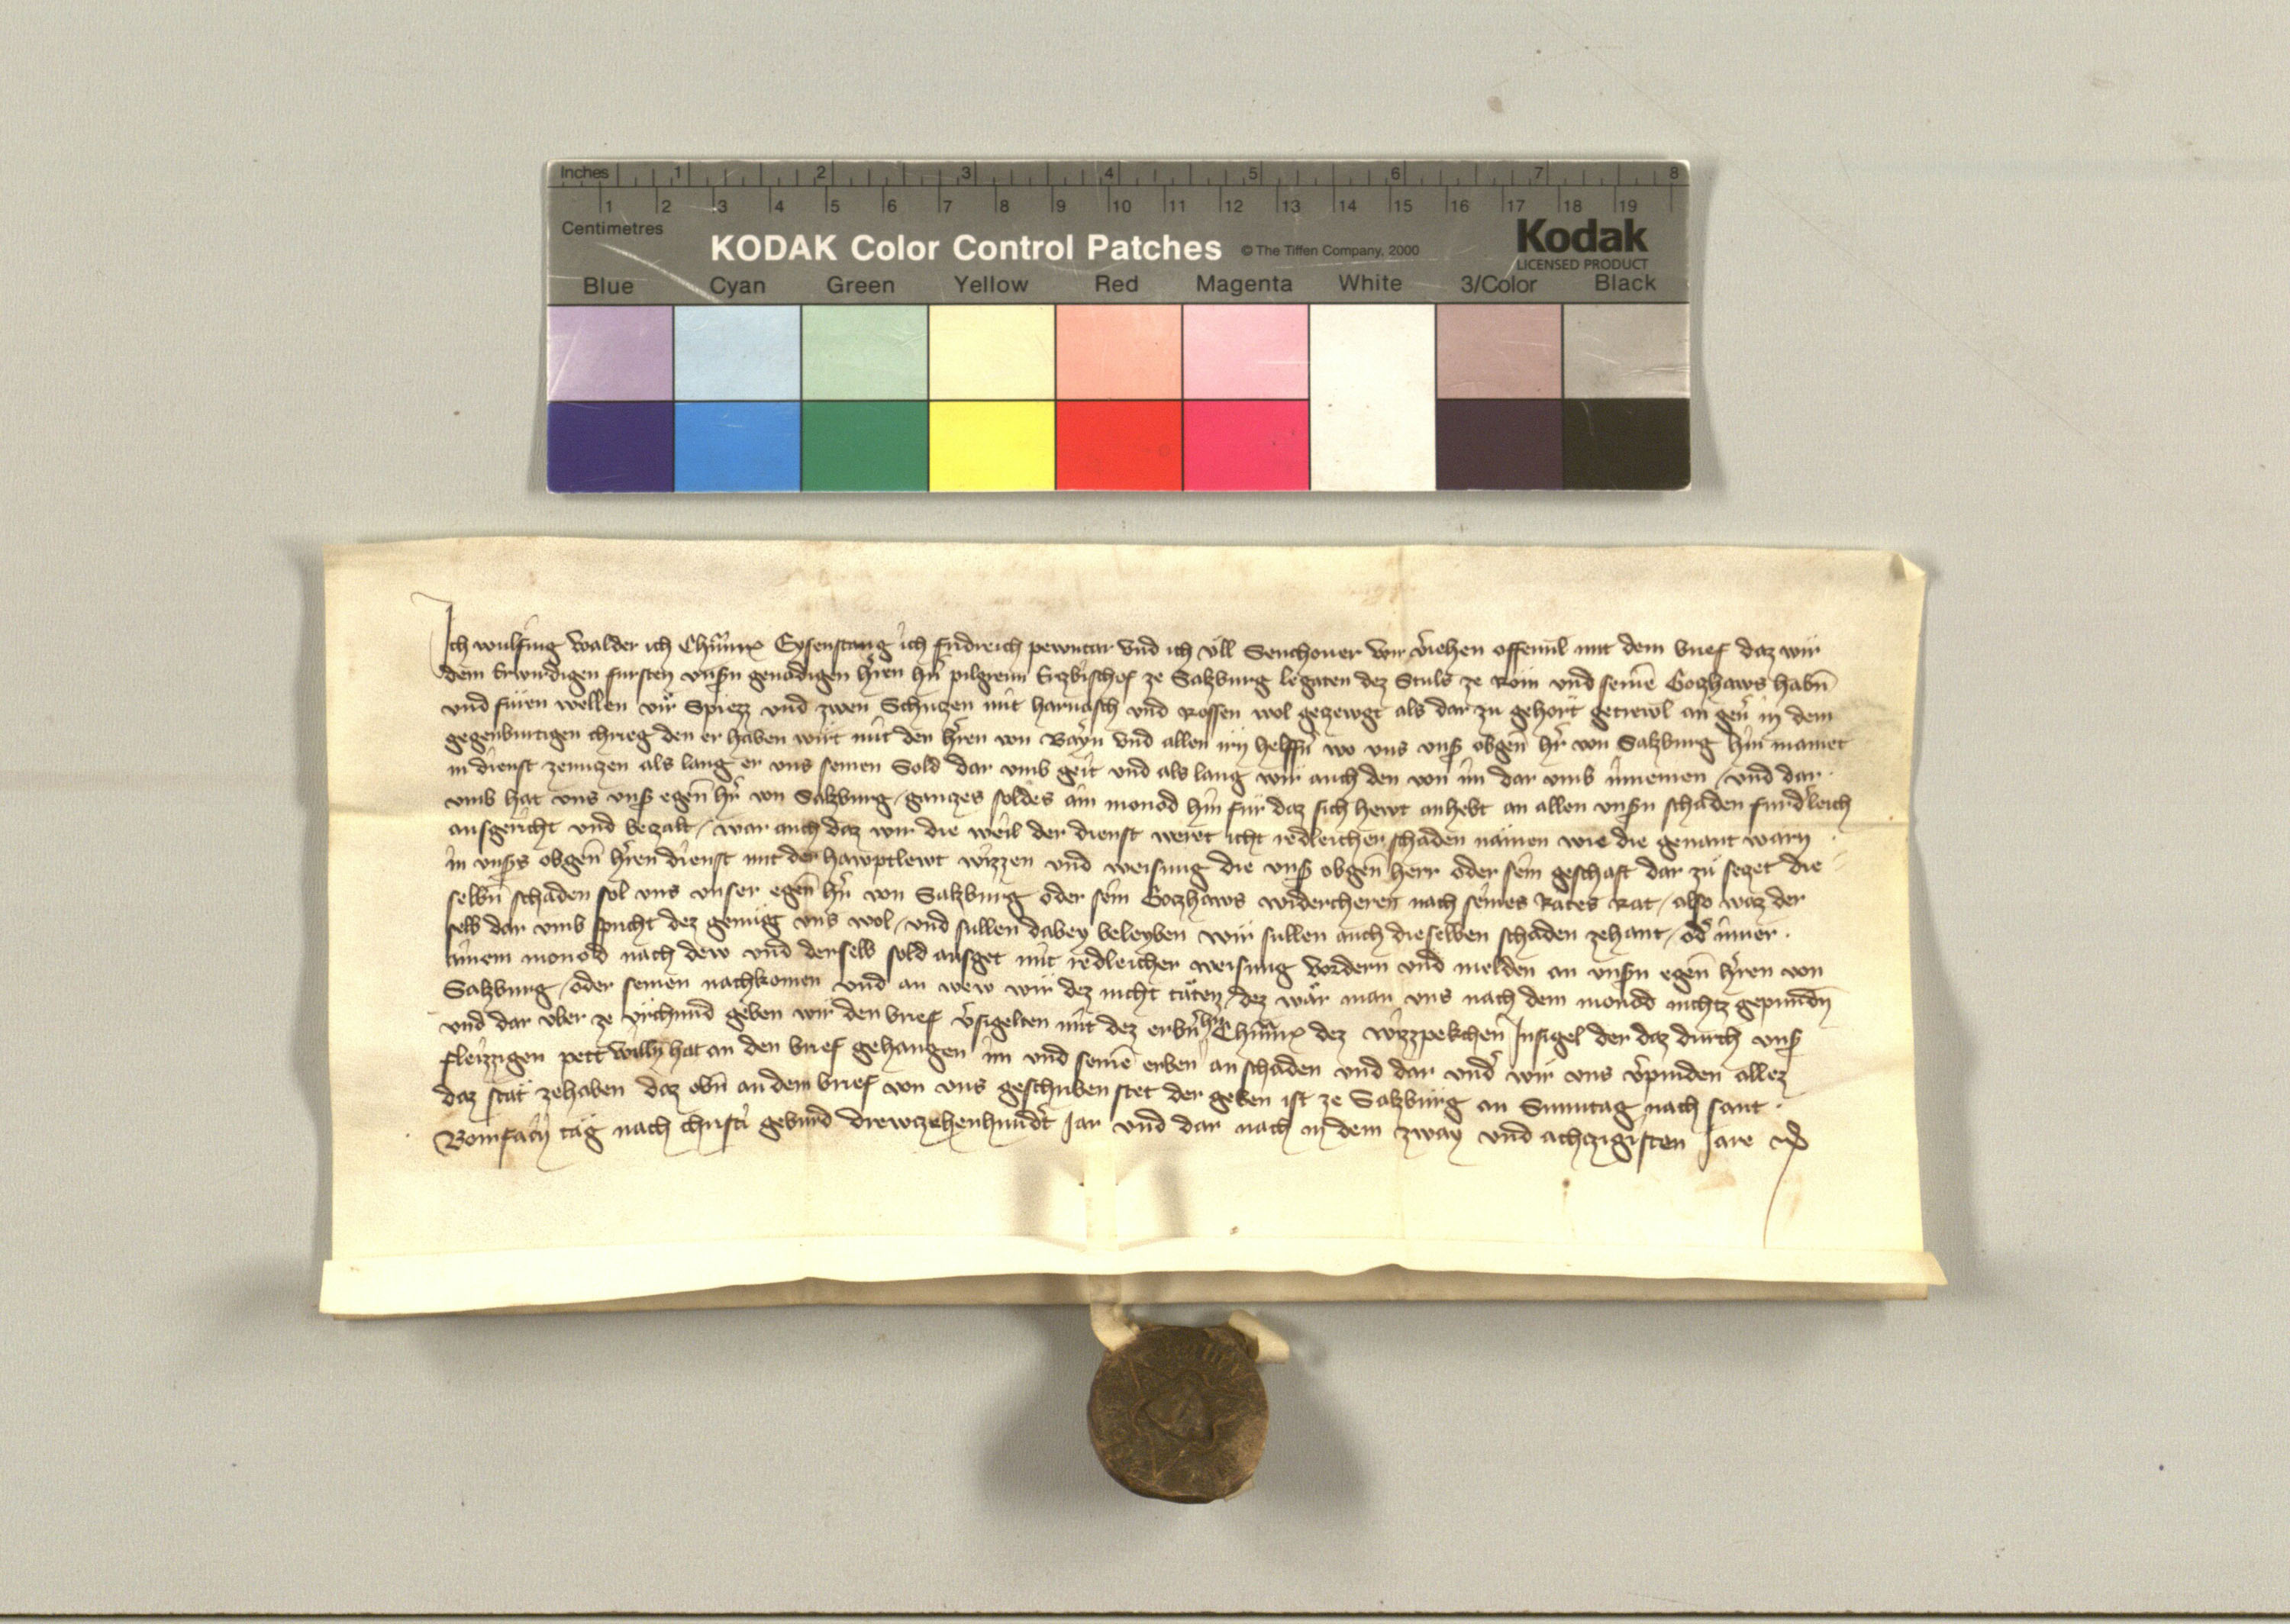 Inches 1 2 3 4 5 6 7 8
1 2 3 4 5 6 7 8 9 10 11 12 13 14 15 16 17 18 19
Centimetres
KODAK Color Control Patches © The Tiffen Company, 2000 Kodak
LICENSED PRODUCT
Blue Cyan Green Yellow Red Magenta White 3/Color Black
Ich wulfing Walder ich Chunr Eysenstang ich fridreich pewntar vnd ich vll Senchouer wir v̓iehen offennl mit dem brief daz wir
dem Erwirdigen fursten vnsn̄ genadigen hr̓en hn̓ pilgreim Erzbischof ze Salzburg legaten dez Stuls ze Rom vnd seinē Gotzhaws habn̄
vnd furen wellen vir Spiezz vnd zwen Schuzen mit harnasch vnd Rossen wol gezewgt als dar zu gehort getrewl an geu̓ in dem
gegenburtigen chrieg den er haben wirt mit den hr̓en von Bayr̓n vnd allen irn helffn̓ wo vns vns̓ obgen̄ hr̓ von Salzburg hin mamet
in dienst zenuzen als lang er vns seinen Sold dar vmb geit vnd als lang wir auch den von im dar vmb innemen / vnd dar
vmb hat vns vns̓ egen̄ hr̓ von Salzburg / ganzes soldes ain monod hin fur daz sich hewt anhebt an allen vnsn̓ schaden furd̓leich
ausgericht vnd bezalt / war auch daz wir die weil der dienst weret icht redleichen schaden namen wie die genant warn
in vns̓s obgen̄ hr̓en dienst mit der hawptlewt wizzen vnd weisung die vns̓ obgen̄ herr oder sein geschaft dar zu sezet die
selbn̄ schaden sol vns vnser egen̄ hr̓ von Salzburg oder sein Gotzhaws widercheren nach seines Rates Rat / also waz der
selb dar vmb spricht dez genugg vns wol / vnd sullen dabey beleyben wir sullen auch dieselben schaden zehant / od̓ inner
ainem monod nach dew vnd derselb sold ausget mit redleicher weisung vordern vnd melden an vnsn̓ egen̄ hr̓en von
Salzburg / oder seinen nachkomen vnd an wew wir dez nicht taten / dez war man vns nach dem monod nichtz gepundn̄
vnd dar vber ze vrchund geben wir den brief v̓sigelten mit dez erbn̓ hn̓ Chunr dez Wizzpekchen Insigel der daz durch vns̓
fleizzigen pett willn hat an den brief gehangen im vnd seinē erben an schaden vnd dar vnd̓ wir vns v̓pinden allez
daz stat zehaben daz obn̄ an dem brief von vns geschriben stet der geben ist ze Salzburg an Sunntag nach sant
Bonifacii tag nach christi geburd drewzehenhundr̓t Jar vnd dar nach in dem zway vnd achzigisten Jare